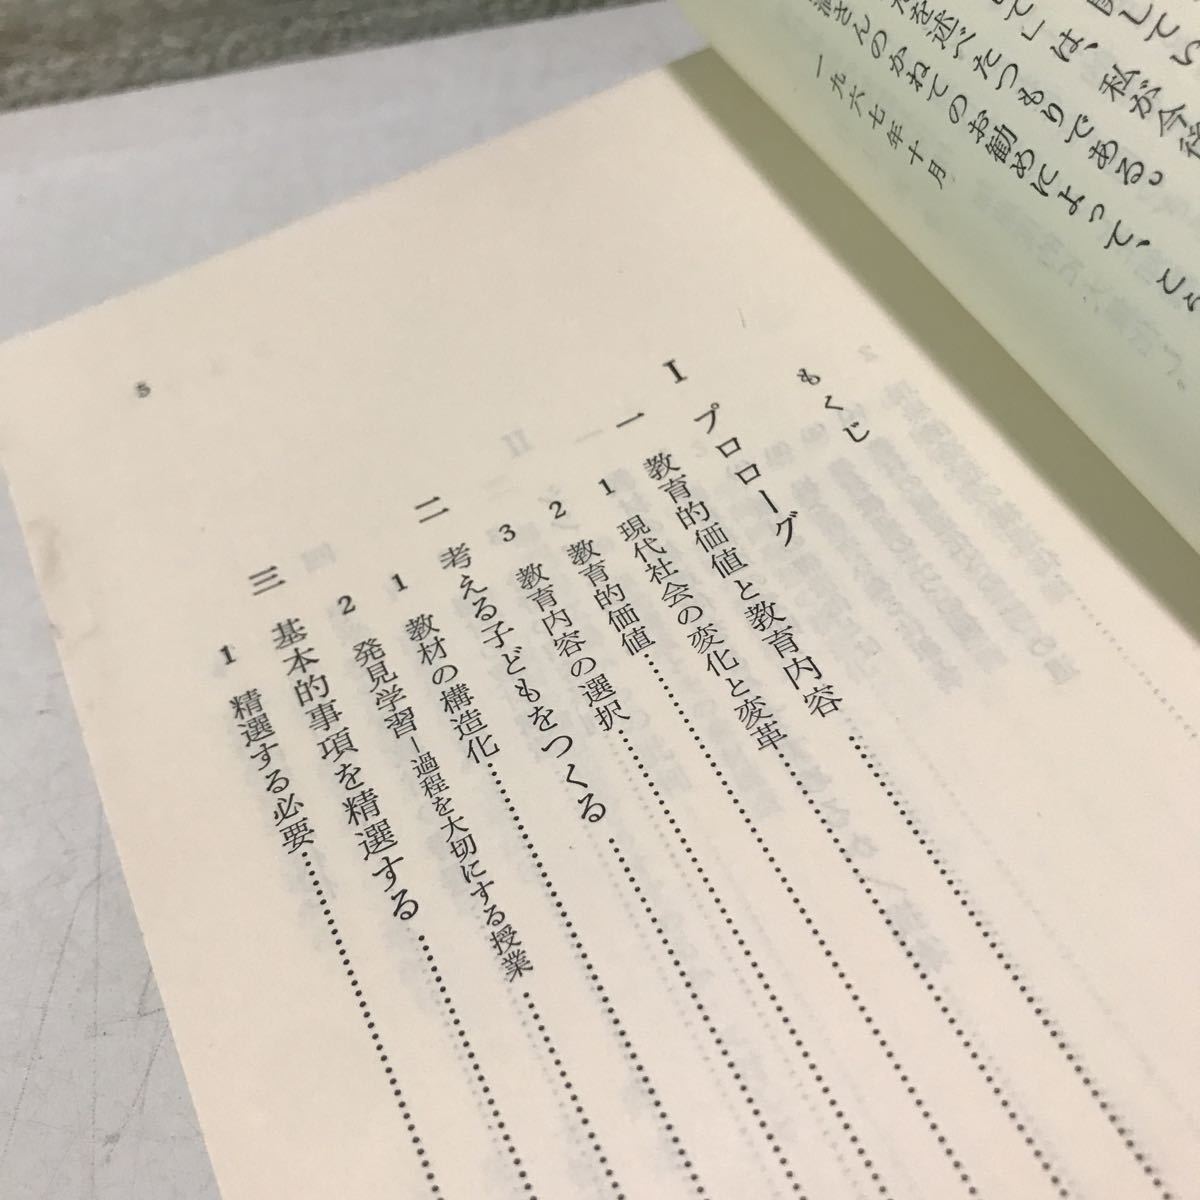 は、私が今後
を述べたつもりである。
さんのかねてのお勧めによって、
一九六七年十月
もくじ
I プロローグ
一 教育的価値と教育内容
1 現代社会の変化と変革
2 教育的価値
3 教育内容の選択
二 考える子どもをつくる
1 教材の構造化
2 発見学習―過程を大切にする授業
三 基本的事項を精選する
1 精選する必要
5